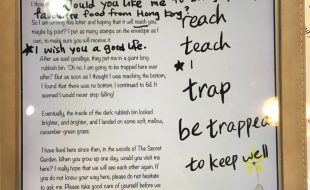 Would you like me to
favourite food from Hong Kong?
So I am writing this letter and hoping that it will reach you,
maybe by post? I put as many stamps on the envelope as I
can, to make sure you will receive it.
★ I wish you a good life.
After we said goodbye, they put me in a giant long
rubbish bin. 'Oh no! I am going to be trapped here over
after!' But as soon as I thought I was reaching the bottom,
I found that there was no bottom. I continued to fall. It
seemed I would never stop falling!
Eventually, the inside of the dark rubbish bin looked
brighter, and brighter, and I landed on some soft, mellow,
cucumber-green grass.
I have lived here since then, in the woods of The Secret
Garden. When you grow up one day, would you visit me
here? I really hope that we could see each other again. If
you do not know your way here, please do not hesitate
to ask me. Please take good care of yourself before we
reach
teach
★ I
trap
be trapped
to keep well